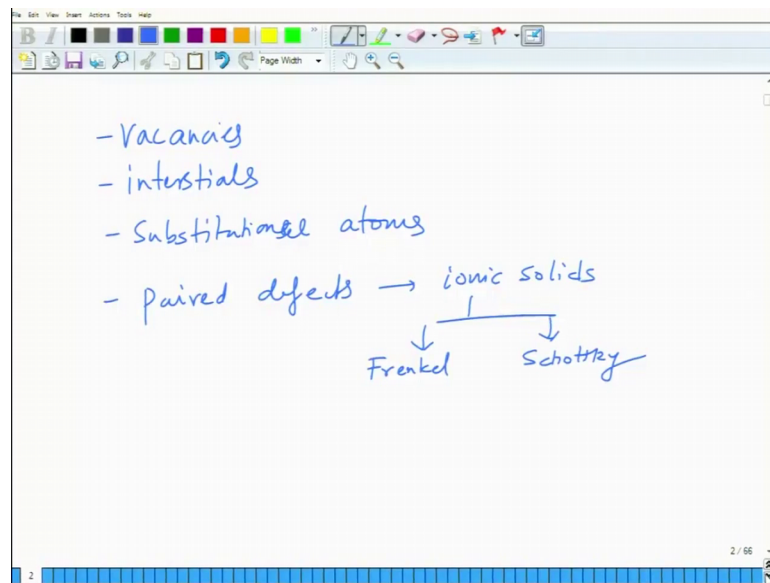 File Edit View Insert Actions Tools Help
B I
Page Width
- Vacancies
- interstials
- Substitutional atoms
- paired defects → ionic solids
Frenkel Schottky
2 / 66
2